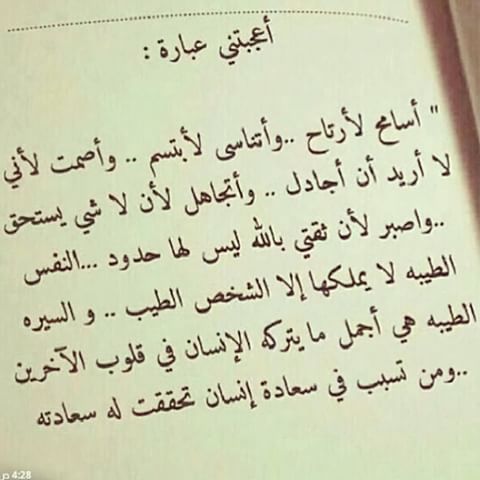 أعجبتني عبارة :
" أسامح لأرتاح ..وأتناسى لأبتسم .. وأصمت لأني
لا أريد أن أجادل .. وأتجاهل لأن لا شي يستحق
..واصبر لأن ثقتي بالله ليس لها حدود ...النفس
الطيبه لا يملكها إلا الشخص الطيب .. و السيره
الطيبه هي أجمل ما يتركه الإنسان في قلوب الآخرين
..ومن تسبب في سعادة إنسان تحققت له سعادته
4:28 p